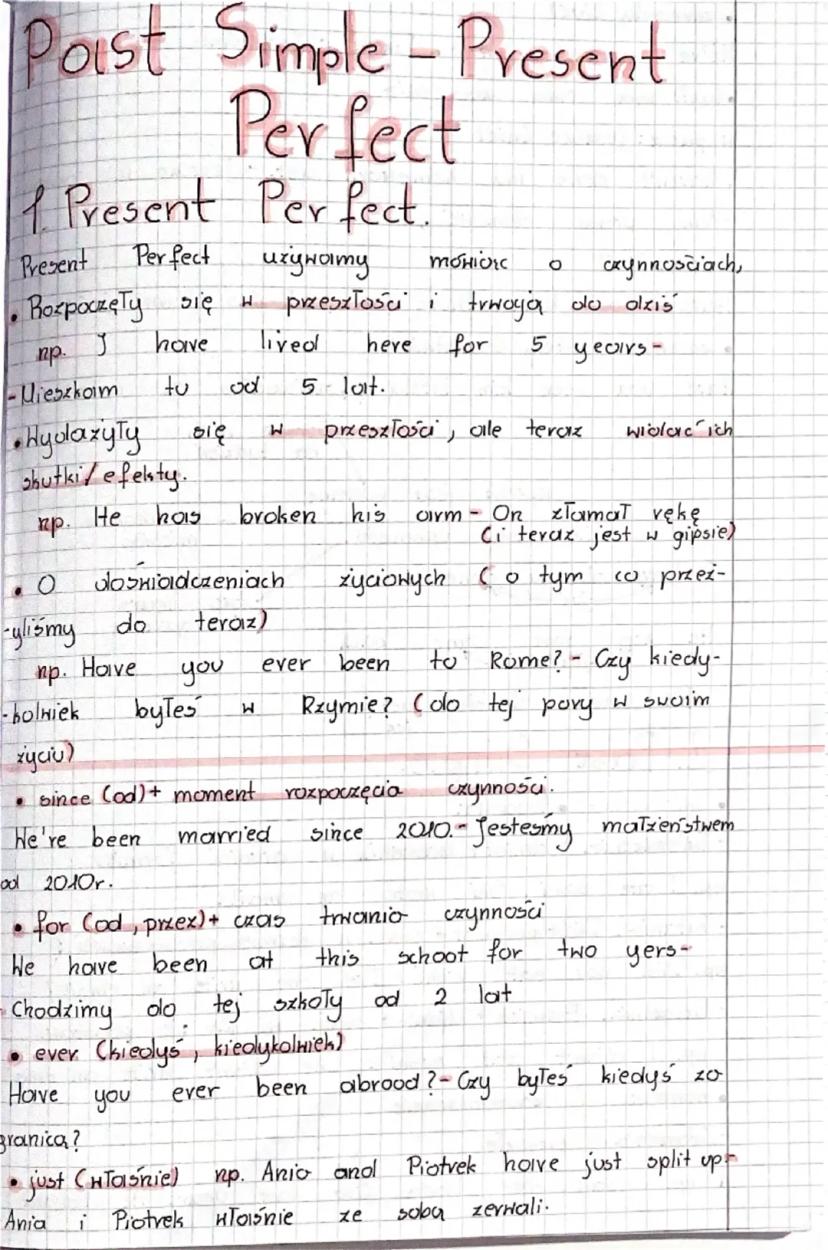 Past Simple - Present
Perfect
1. Present Perfect.
Present Perfect używamy mówiąc o czynnościach,
• Rozpoczęły się w przeszłości i trwają do dziś
np. I have lived here for 5 years-
-Mieszkam tu od 5 lat.
• Wydażyły się w przeszłości, ale teraz widać ich
skutki/efekty.
np. He has broken his arm - On złamał rękę
(i teraz jest w gipsie)
• O doświadczeniach życiowych (o tym co przeż-
-yliśmy do teraz)
np. Have you ever been to Rome? - Czy kiedy-
-kolwiek byłeś w Rzymie? (do tej pory w swoim
życiu)
• since (od)+ moment rozpoczęcia czynności.
We're been married since 2010.- Jesteśmy małżeństwem
od 2010r.
• for (od, przez)+ czas trwania czynności
We have been at this schoot for two yers-
Chodzimy do tej szkoły od 2 lat
• ever (kiedyś, kiedykolwiek)
Have you ever been abrood? - Czy byłeś kiedyś za
granicą?
• just (właśnie) np. Ania and Piotrek have just split up-
Ania i Piotrek właśnie ze sobą zerwali.